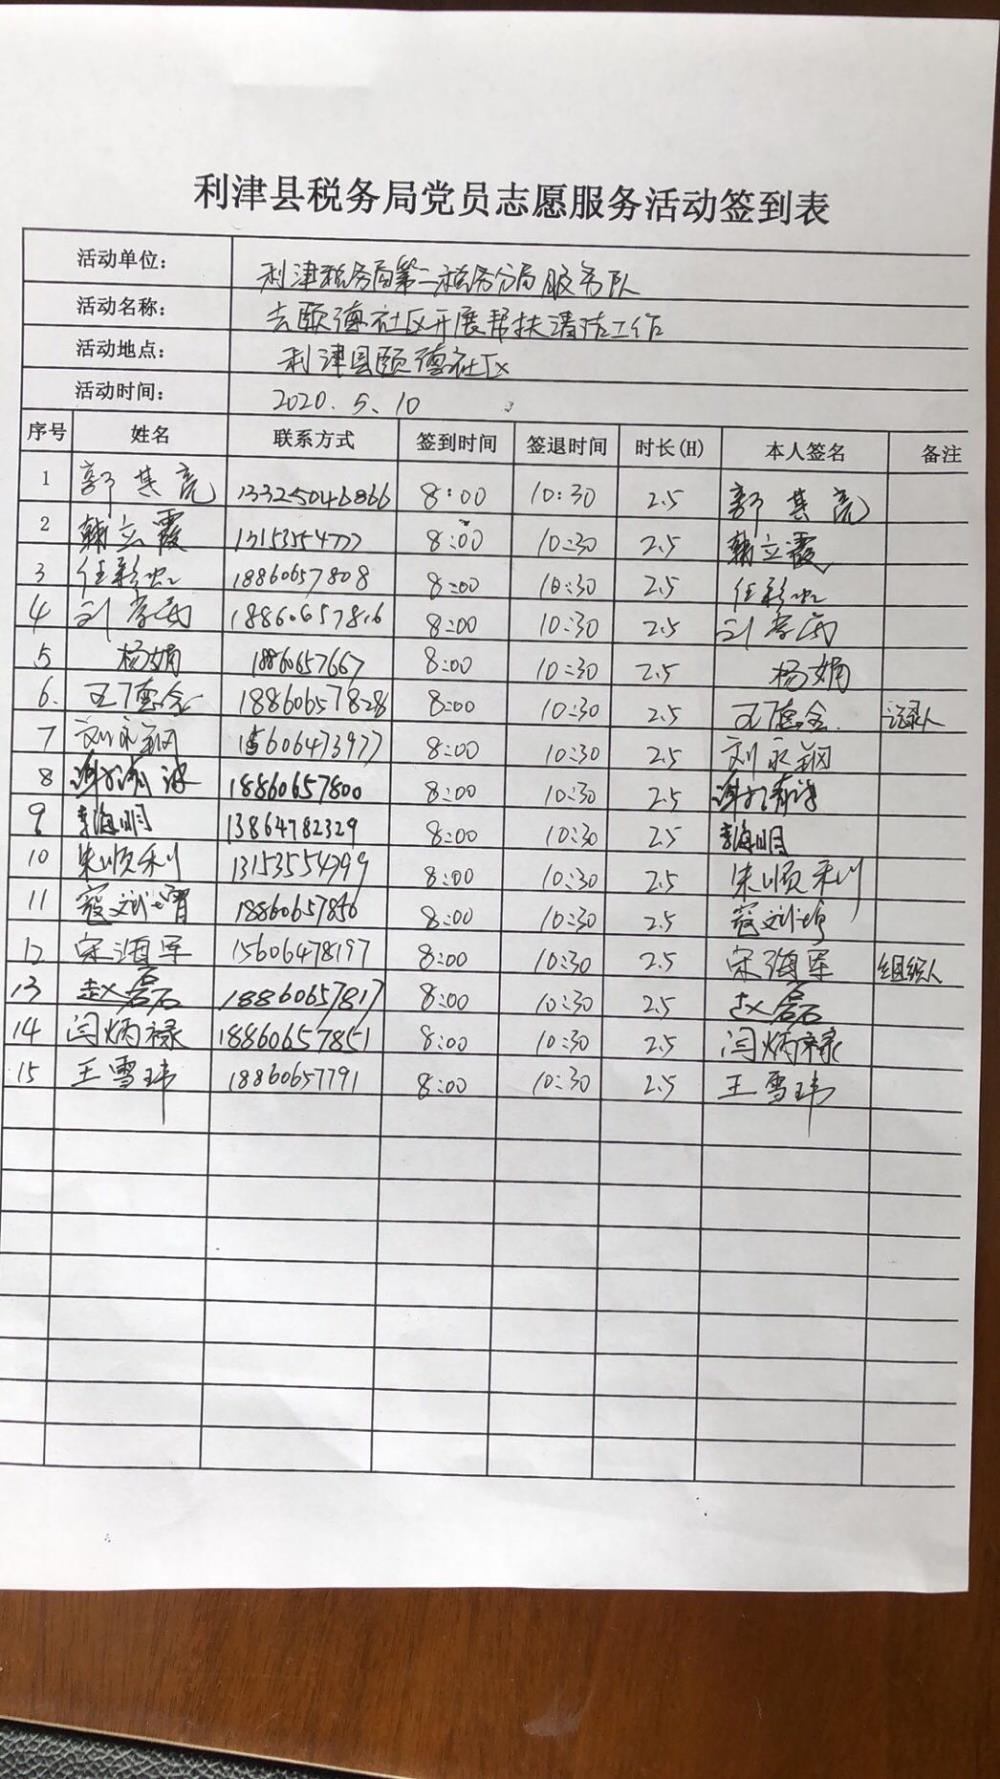 利津县税务局党员志愿服务活动签到表
活动单位： 利津税务局第二税务分局服务队
活动名称： 去颐德社区开展帮扶清洁工作
活动地点： 利津县颐德社区
活动时间： 2020.5.10
序号 姓名 联系方式 签到时间 签退时间 时长(H) 本人签名 备注
1 郭其亮 13325046866 8:00 10:30 2.5 郭其亮
2 韩立霞 8:00 10:30 2.5 韩立霞
3 任彩虹 18860657808 8:00 10:30 2.5 任彩虹
4 18860657816 8:00 10:30 2.5
5 杨娟 18860657667 8:00 10:30 2.5 杨娟
6. 18860657828 8:00 10:30 2.5 记录人
7 刘永钢 15606473977 8:00 10:30 2.5 刘永钢
8 18860657800 8:00 10:30 2.5
9 李海明 13864782329 8:00 10:30 2.5 李海明
10 朱顺利 13153554799 8:00 10:30 2.5 朱顺利
11 18860657856 8:00 10:30 2.5
12 宋海军 15606478197 8:00 10:30 2.5 宋海军 组织人
13 赵磊 18860657817 8:00 10:30 2.5 赵磊
14 闫炳禄 18860657851 8:00 10:30 2.5 闫炳禄
15 王雪玮 18860657791 8:00 10:30 2.5 王雪玮